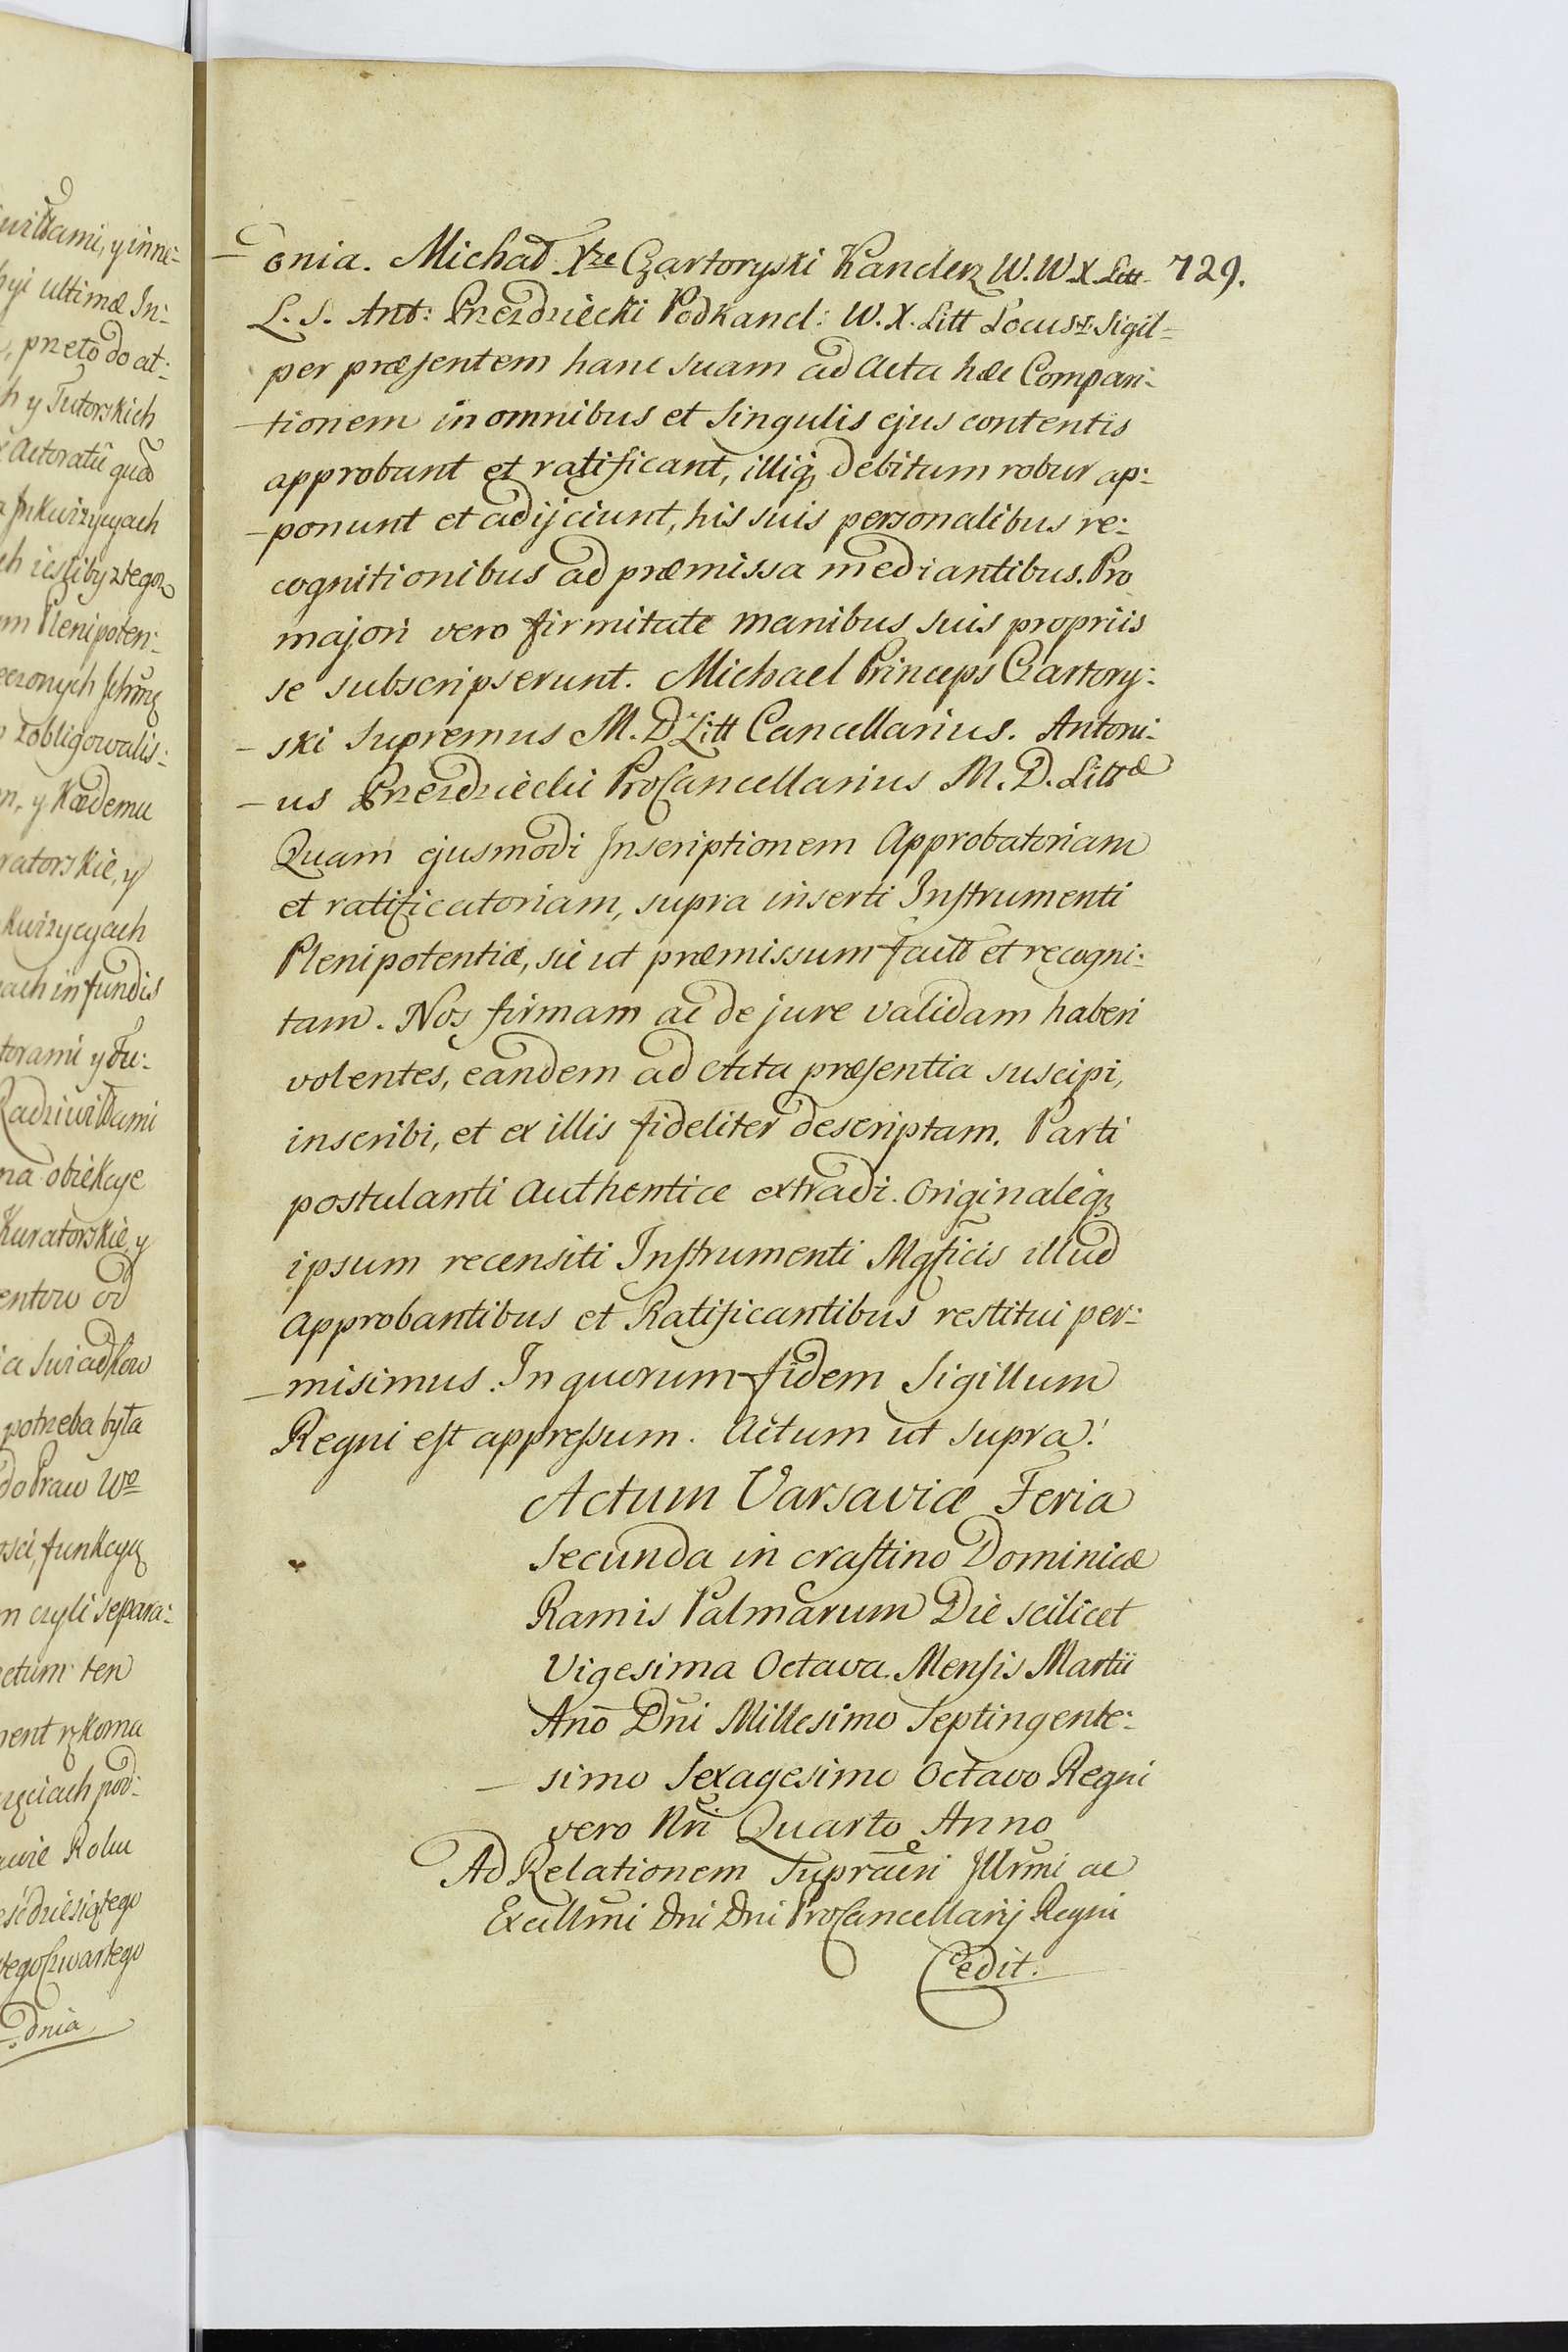 wiłłami, y inne-
hyi ultimæ In:
przeto do at:
h y Tutorskich
Actoratu quod
Inkwizycyach
ieszliby z tegoz
m Plenipoten:
zobligowalis:
n, y Każdemu
ratorskie, y
kwizycyach
ach in fundis
torami y Tu:
Radziwiłłami
na obiekcye
Kuratorskie, y
entow od
ia Swiadkow
potrzeba była
do Praw Wo
osci, funkcyą
m czyli separa:
ctum ten
ment rzkoma
ach pod:
Roku
esdziesiątego
tego Czwartego
- dnia
- dnia. Michał Xze Czartoryski Kanclerz W. W. X. Litt. 729.
L. S. Ant: Przezdziecki Podkancl: W. X. Litt Locus Sigil-
per præsentem hanc suam ad Acta hæc Compari-
-tionem in omnibus et singulis ejus contentis
approbant et ratificant, illiq debitum robur ap:
-ponunt et adijciunt, his suis personalibus re:
cognitionibus ad præmissa mediantibus. Pro
majori vero firmitate manibus suis propriis
se subscripserunt. Michael Princeps Czartory:
- ski Supremus M. D Litt Cancellarius. Antoni-
- us Przezdziecki ProCancellarius M. D. Litt æ
Quam ejusmodi Inscriptionem Approbatoriam
et ratificatoriam, supra inserti Instrumenti
Plenipotentiæ, sic ut præmissum factt et recogni:
tam. Nos firmam ac de jure validam haberi
volentes, eandem ad Acta præsentia suscipi,
inscribi, et ex illis fideliter descriptam. Parti
postulanti Authentice extradi. Originaleq
ipsum recensiti Instrumenti Mgficis illud
approbantibus et Ratificantibus restitui per:
-misimus. In quorum fidem Sigillum
Regni est appressum. Actum ut supra.
Actum Varsaviæ Feria
Secunda in crastino Dominicæ
Ramis Palmarum Die scilicet
Vigesima Octava Mensis Martii
Año Dni Millesimo Septingente:
- simo Sexagesimo Octavo Regni
vero Nri Quarto Anno
Ad Relationem Illrmi ac
Excellmi Dni Dni ProCancellarij Regni
Cedit.